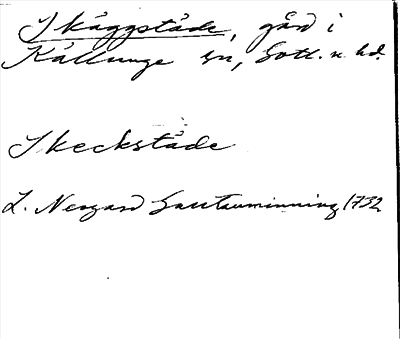 Skäggstäde, gård i
Källunge sn, Gotl. n. hd.
Skeckstäde
L. Neogard Gautauminning 1732